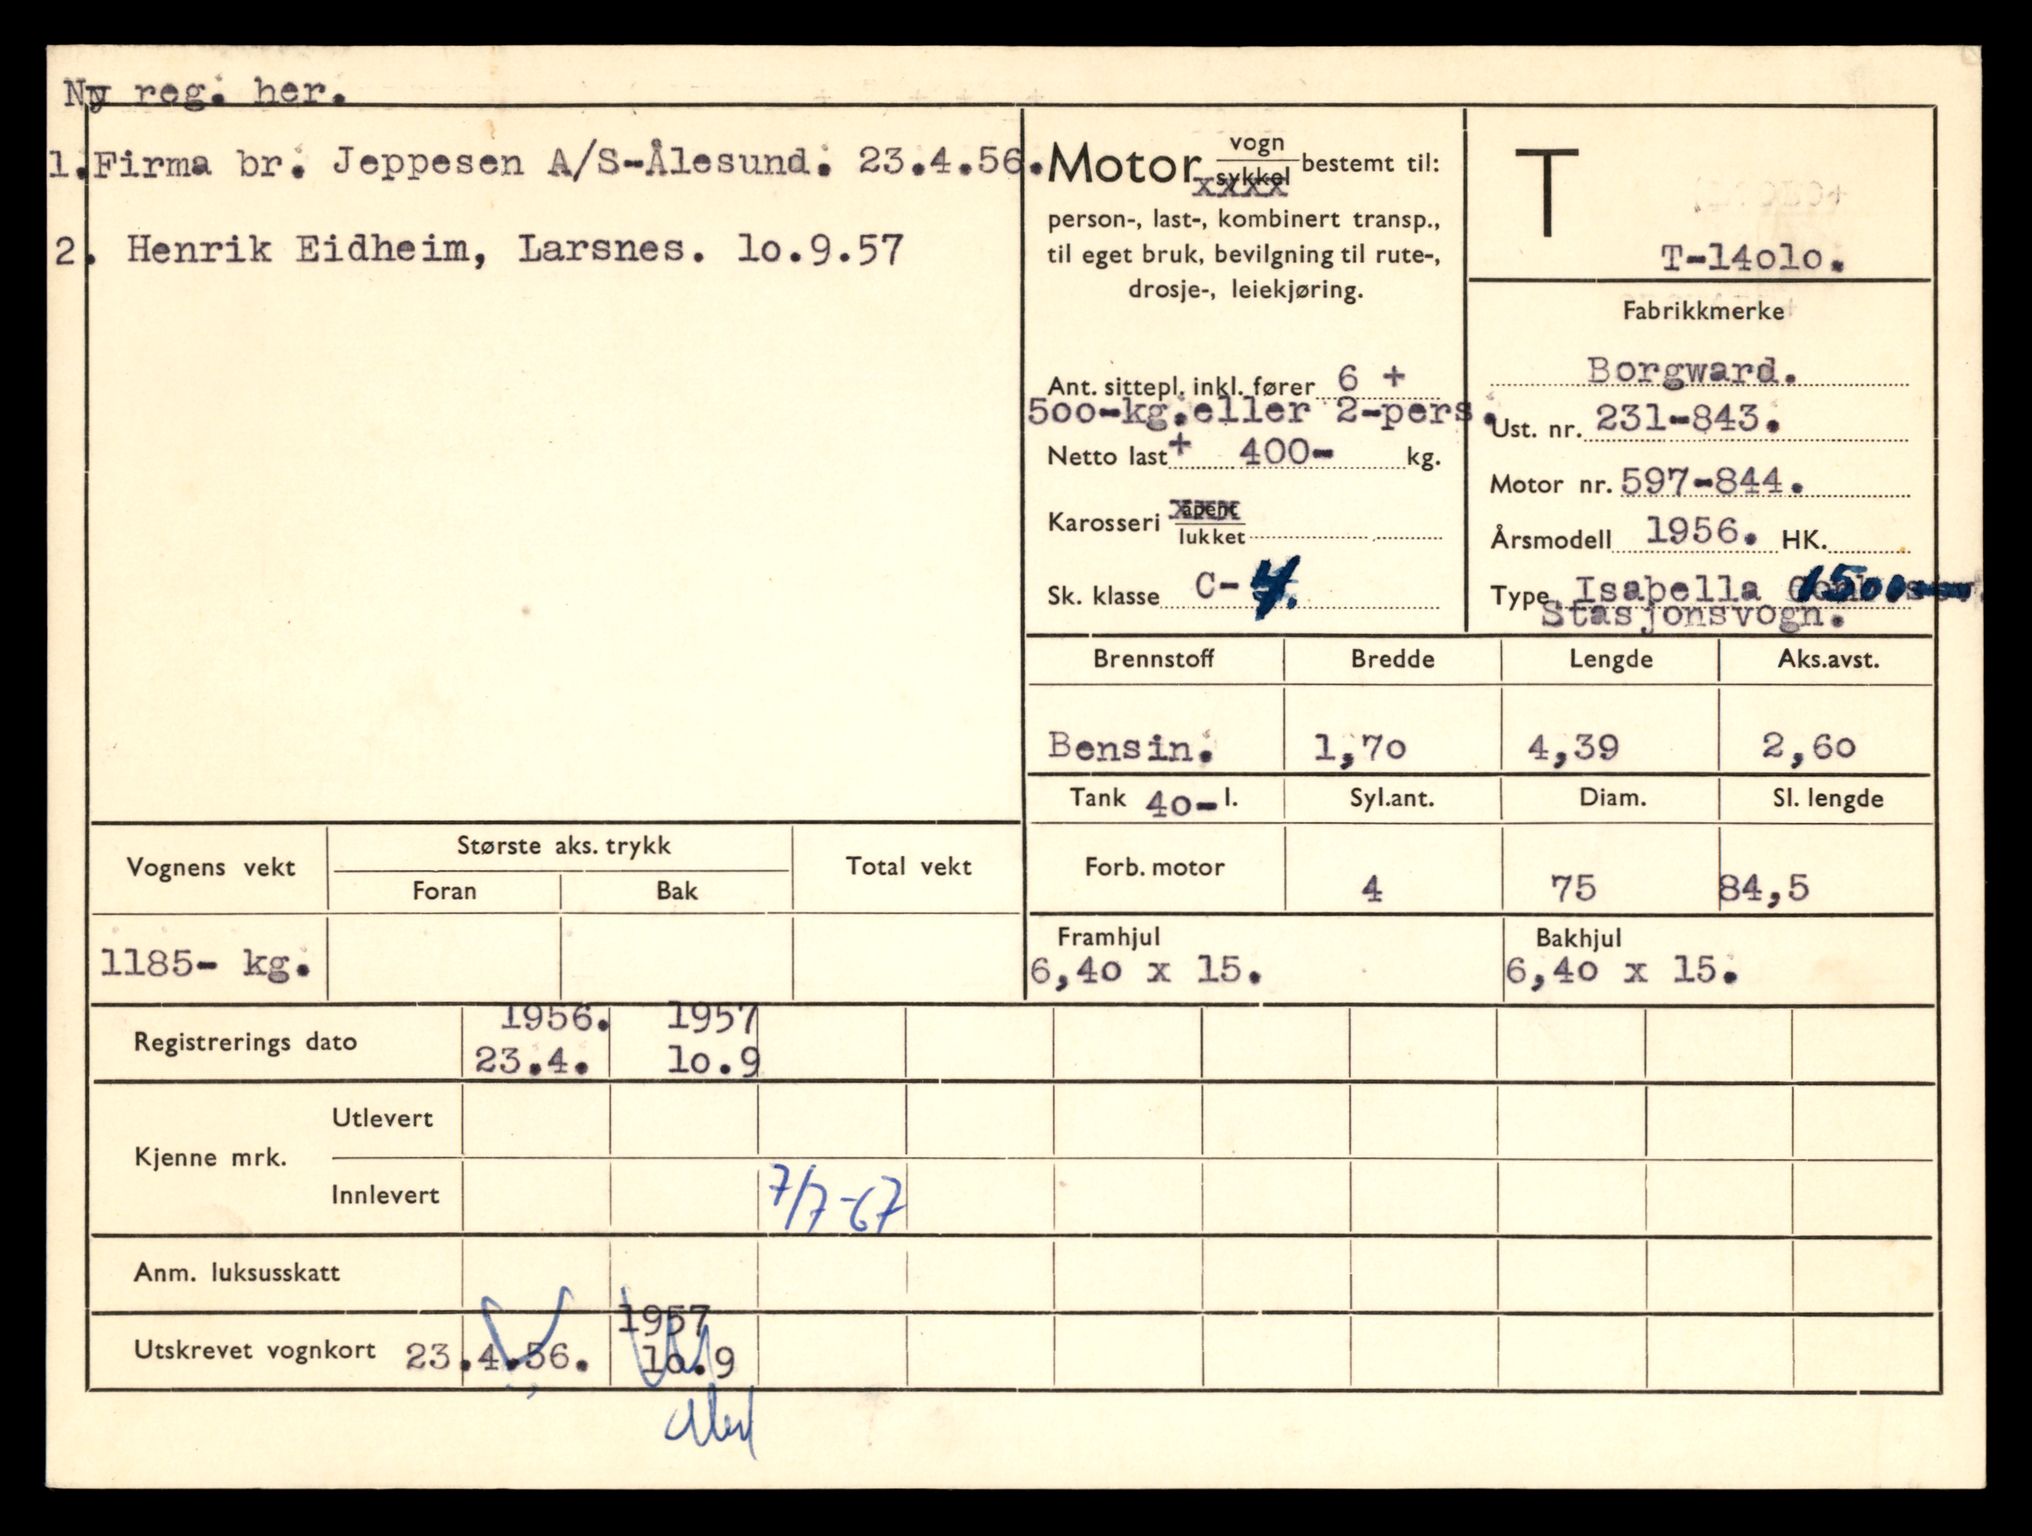 Ny reg. her.
1. Firma br. Jeppesen A/S-Ålesund. 23.4.56.
2. Henrik Eidheim, Larsnes. lo.9.57
Motor vogn sykkel bestemt til:
person-, last-, kombinert transp.,
til eget bruk, bevilgning til rute-,
drosje-, leiekjøring.
Ant. sittepl. inkl. fører 6 +
500-kg.eller 2-pers.
Netto last + 400- kg.
Karosseri åpent
lukket
Sk. klasse C-4.
T
T-14olo.
Fabrikkmerke
Borgward.
Ust. nr. 231-843.
Motor nr. 597-844.
Årsmodell 1956. HK.
Type Isabella 1500
Stasjonsvogn.
Brennstoff Bredde Lengde Aks.avst.
Bensin. 1,7o 4,39 2,6o
Tank 4o- l. Syl.ant. Diam. Sl. lengde
Forb. motor 4 75 84,5
Framhjul Bakhjul
6,4o x 15. 6,4o x 15.
Vognens vekt Største aks. trykk Total vekt
Foran Bak
1185- kg.
1956. 1957
Registrerings dato 23.4. lo.9
Kjenne mrk. Utlevert
Innlevert 7/7-67
Anm. luksusskatt
1957
Utskrevet vognkort 23.4.56. lo.9